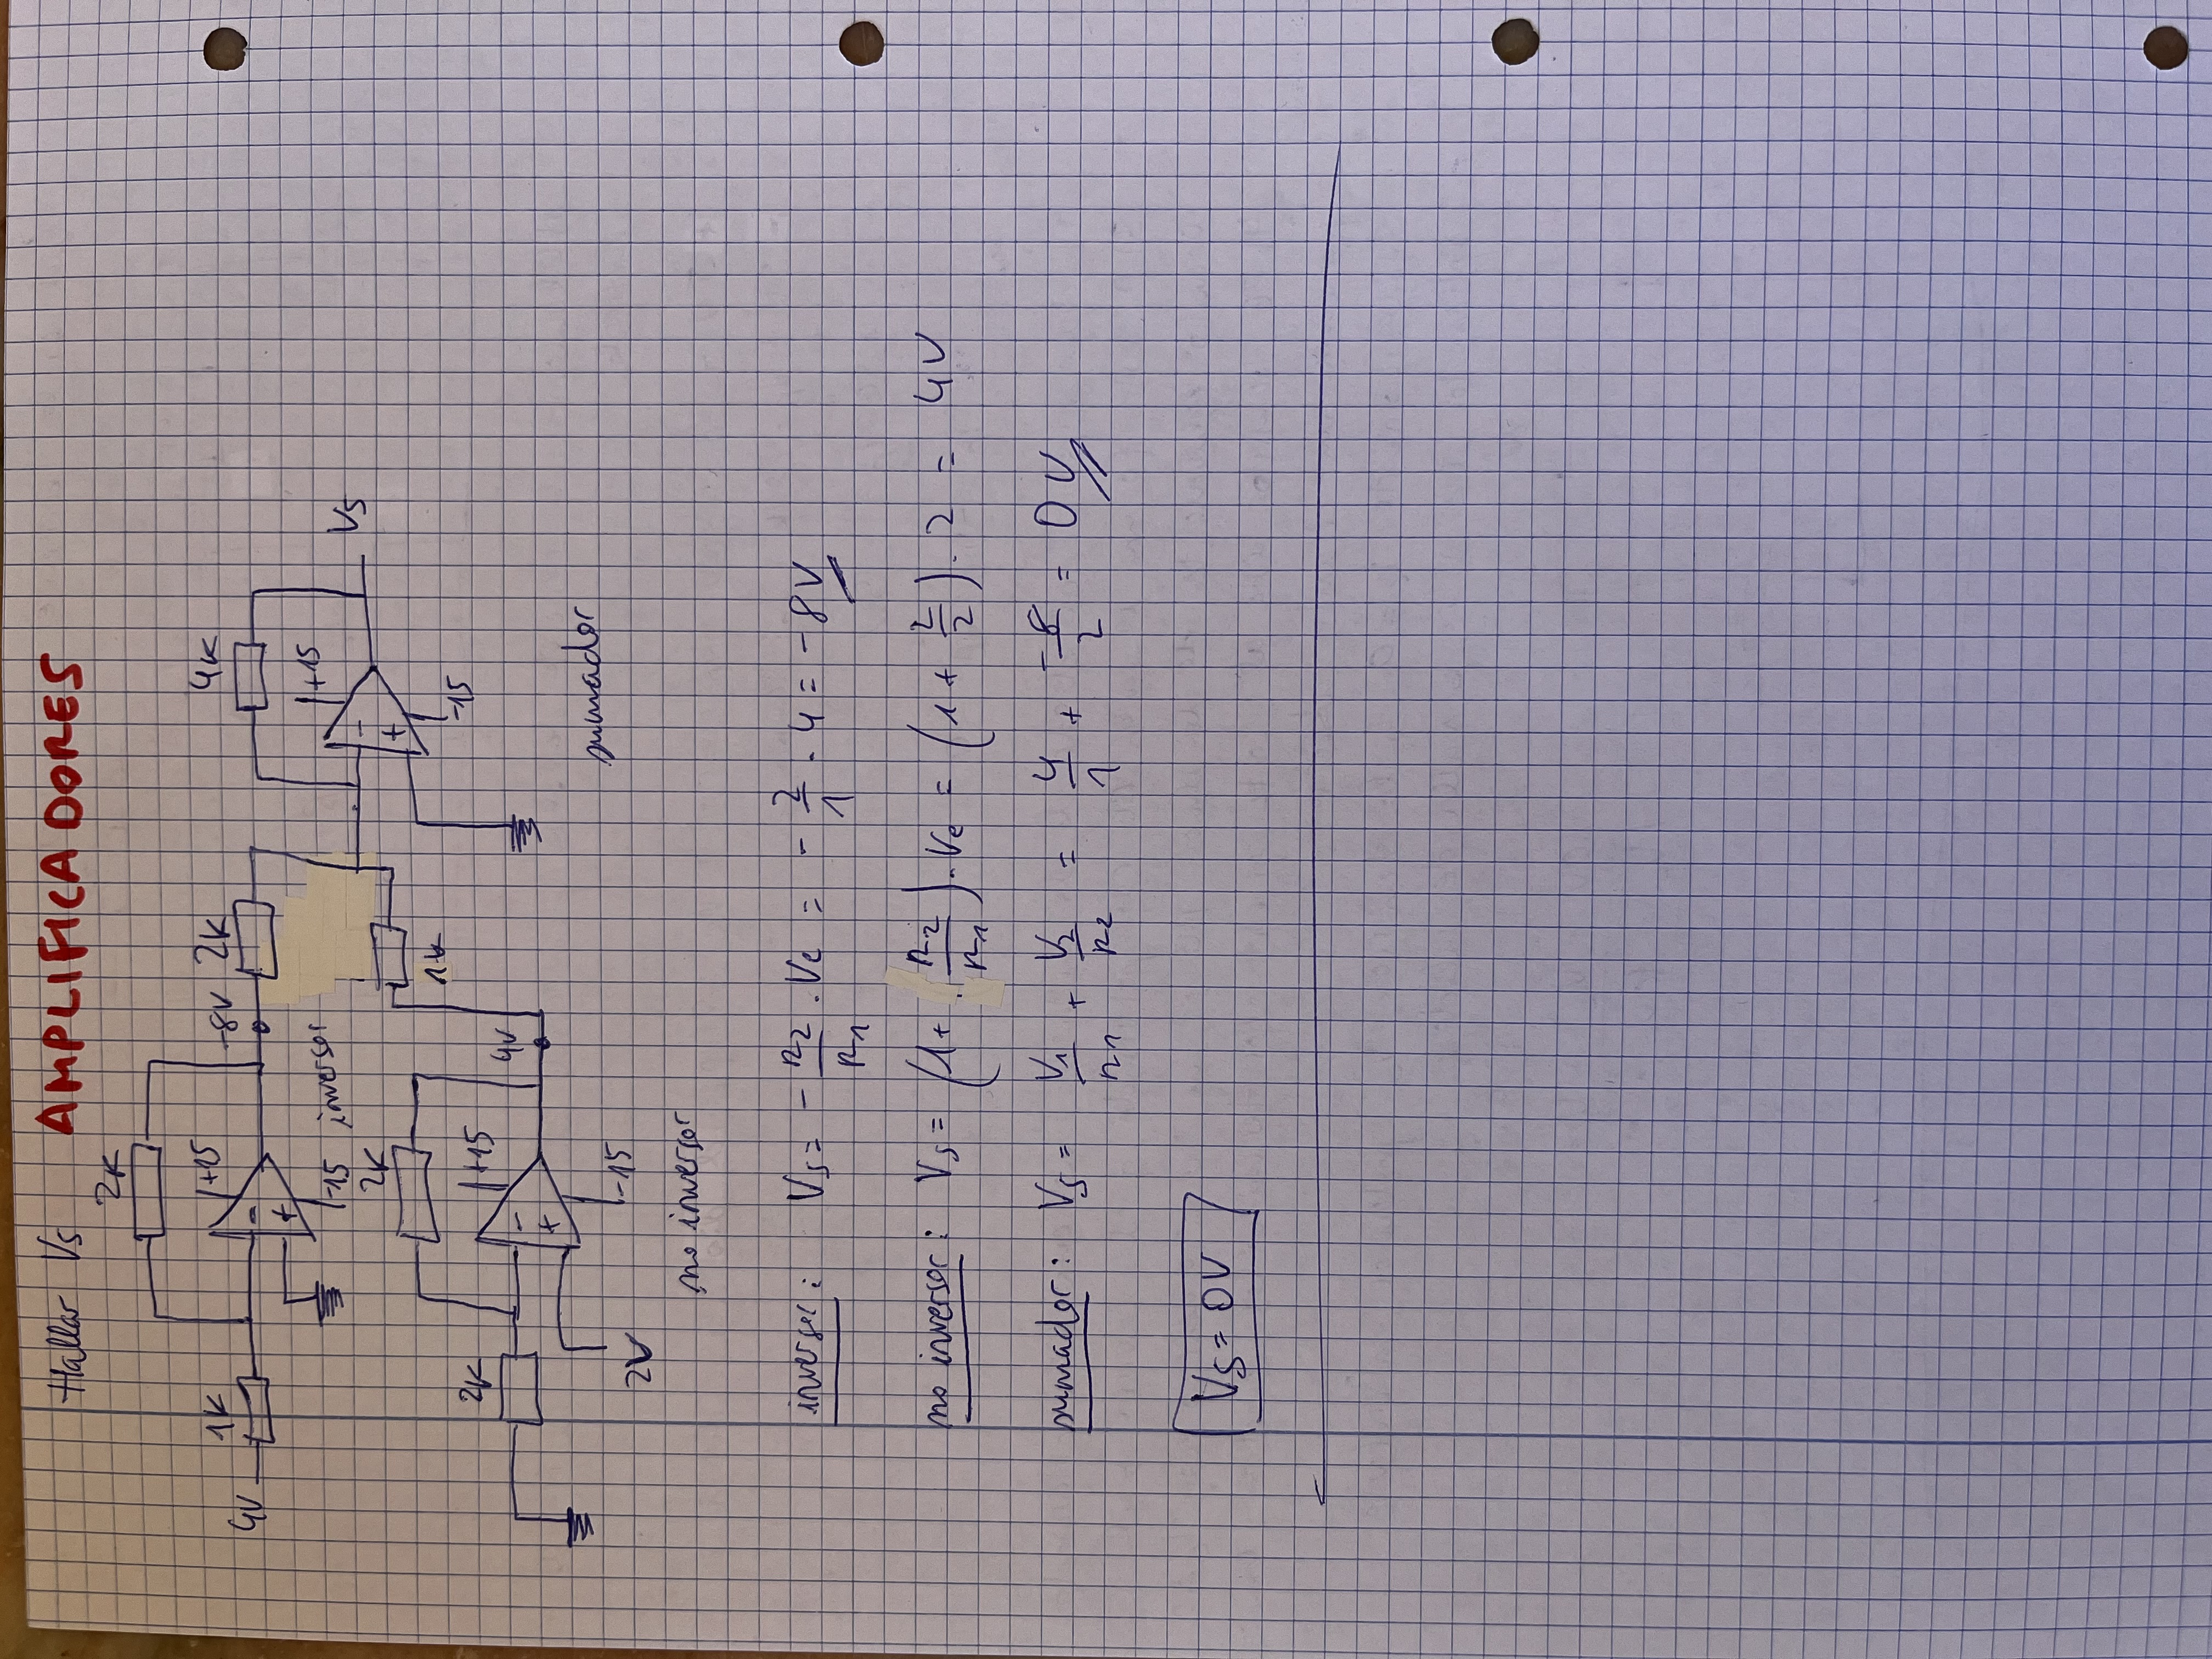 Hallar Vs AMPLIFICADORES
2K
1K
+15
4V
-
+
-15
inversor
-8V
2K
4K
+15
-
+
-15
Vs
1K
2K
2K
+15
-
+
-15
4V
2V
sumador
no inversor
inversor: Vs = - R2/R1 · Ve = - 2/1 · 4 = -8V
no inversor: Vs = (1 + R2/R1) · Ve = (1 + 2/2) · 2 = 4V
sumador: Vs = V1/R1 + V2/R2 = 4/1 + -8/2 = 0V
Vs = 0V